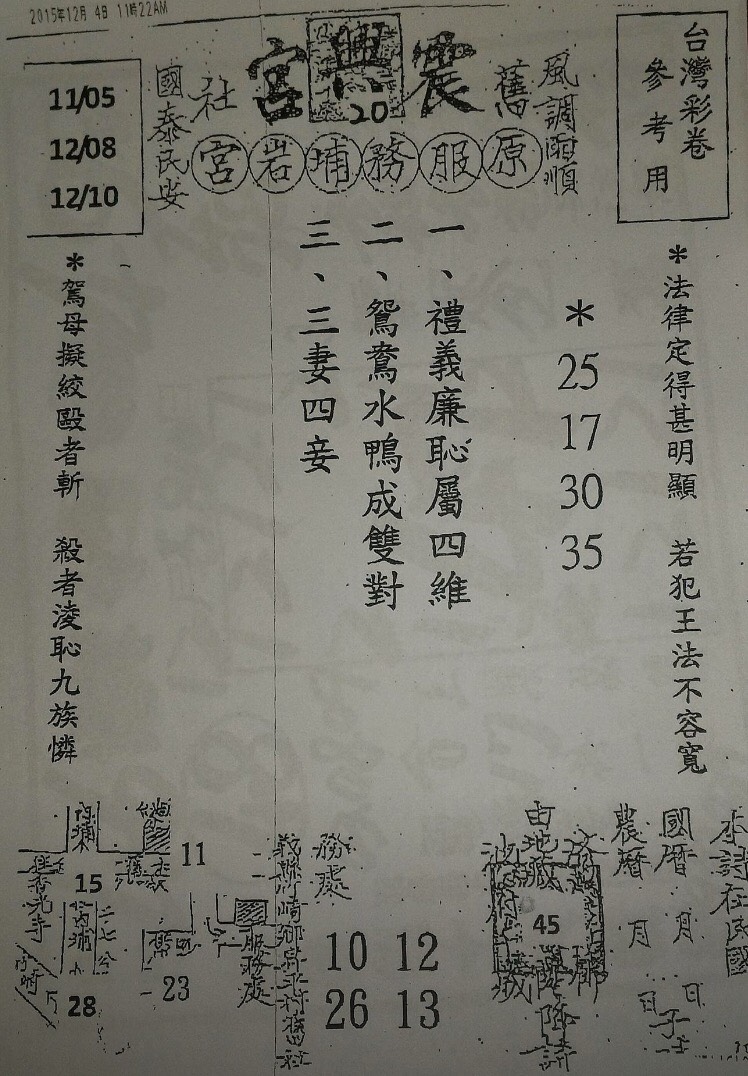 2015年12月 4日 11時22AM
台灣彩卷
參考用
風調雨順
舊
震興宮
20
社
國泰民安
原服務埔岩宮
11/05
12/08
12/10
*法律定得甚明顯 若犯王法不容寬
*
25
17
30
35
一、禮義廉恥屬四維
二、鴛鴦水鴨成雙對
三、三妻四妾
*駕母擬絞毆者斬 殺者淩恥九族憐
本詩在民國
國曆 月 日
農曆 月 日子
由地藏
45
降詩
務處
10 12
26 13
服務處
11
23
內埔
15
28